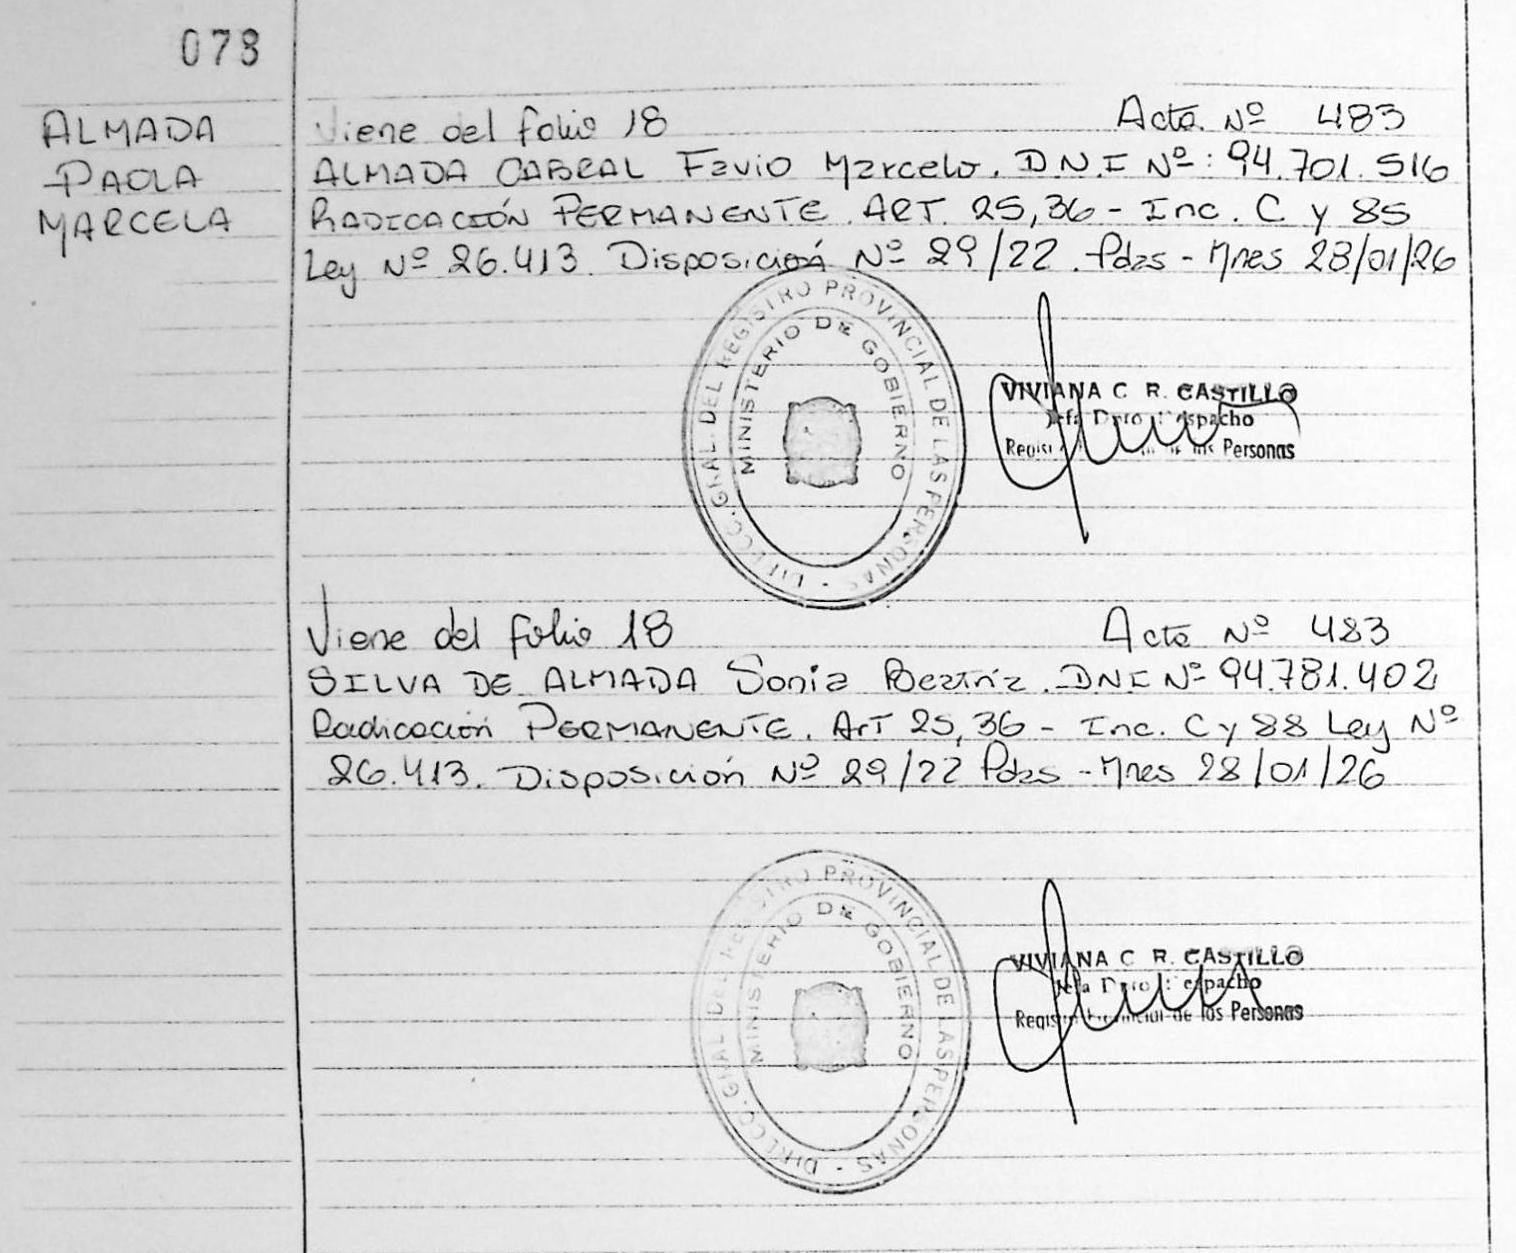 078
ALMADA
PAOLA
MARCELA
Viene del folio 18 Acta Nº 483
ALMADA CABRAL Favio Marcelo. D.N.I Nº: 94.701.516
RADICACIÓN PERMANENTE. ART. 25,36 - Inc. C y 85
Ley Nº 26.413. Disposición Nº 29/22. Pdas - Mnes 28/01/26
DIRECC. GRAL. DEL REGISTRO PROVINCIAL DE LAS PERSONAS -
MINISTERIO DE GOBIERNO
VIVIANA C R. CASTILLO
Jefa Dpto Despacho
Personas
Viene del folio 18 Acta Nº 483
SILVA DE ALMADA Sonia Beatriz. DNI Nº 94.781.402
Radicación PERMANENTE. Art 25,36 - Inc. C y 88 Ley Nº
26.413. Disposición Nº 29/22 Pdas - Mnes 28/01/26
DIRECC. GRAL. DEL REGISTRO PROVINCIAL DE LAS PERSONAS -
MINISTERIO DE GOBIERNO
VIVIANA C R. CASTILLO
Jefa Dpto Despacho
Registro Provincial de los Personas